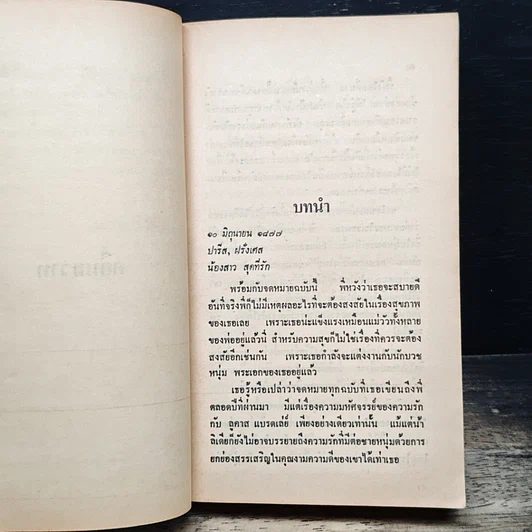 บทนำ
๑๐ มิถุนายน ๑๘๗๗
ปารีส, ฝรั่งเศส
น้องสาว สุดที่รัก
พร้อมกับจดหมายฉบับนี้ พี่หวังว่าเธอจะสบายดี
อันที่จริงพี่ก็ไม่มีเหตุผลอะไรที่จะต้องสงสัยในเรื่องสุขภาพ
ของเธอเลย เพราะเธอน่ะแข็งแรงเหมือนแม่วัวทั้งหลาย
ของพ่ออยู่แล้วนี่ สำหรับความสุขก็ไม่ใช่เรื่องที่ควรจะต้อง
สงสัยอีกเช่นกัน เพราะเธอกำลังจะแต่งงานกับนักบวช
หนุ่ม พระเอกของเธออยู่แล้ว
เธอรู้หรือเปล่าว่าจดหมายทุกฉบับที่เธอเขียนถึงพี่
ตลอดปีที่ผ่านมา มีแต่เรื่องความมหัศจรรย์ของความรัก
กับ ลูคาส แบรดเลย์ เพียงอย่างเดียวเท่านั้น แม้แต่น้ำ
ลิเดียก็ยังไม่อาจบรรยายถึงความรักที่มีต่อชายหนุ่มด้วยการ
ยกย่องสรรเสริญในคุณงามความดีของเขาได้เท่าเธอ